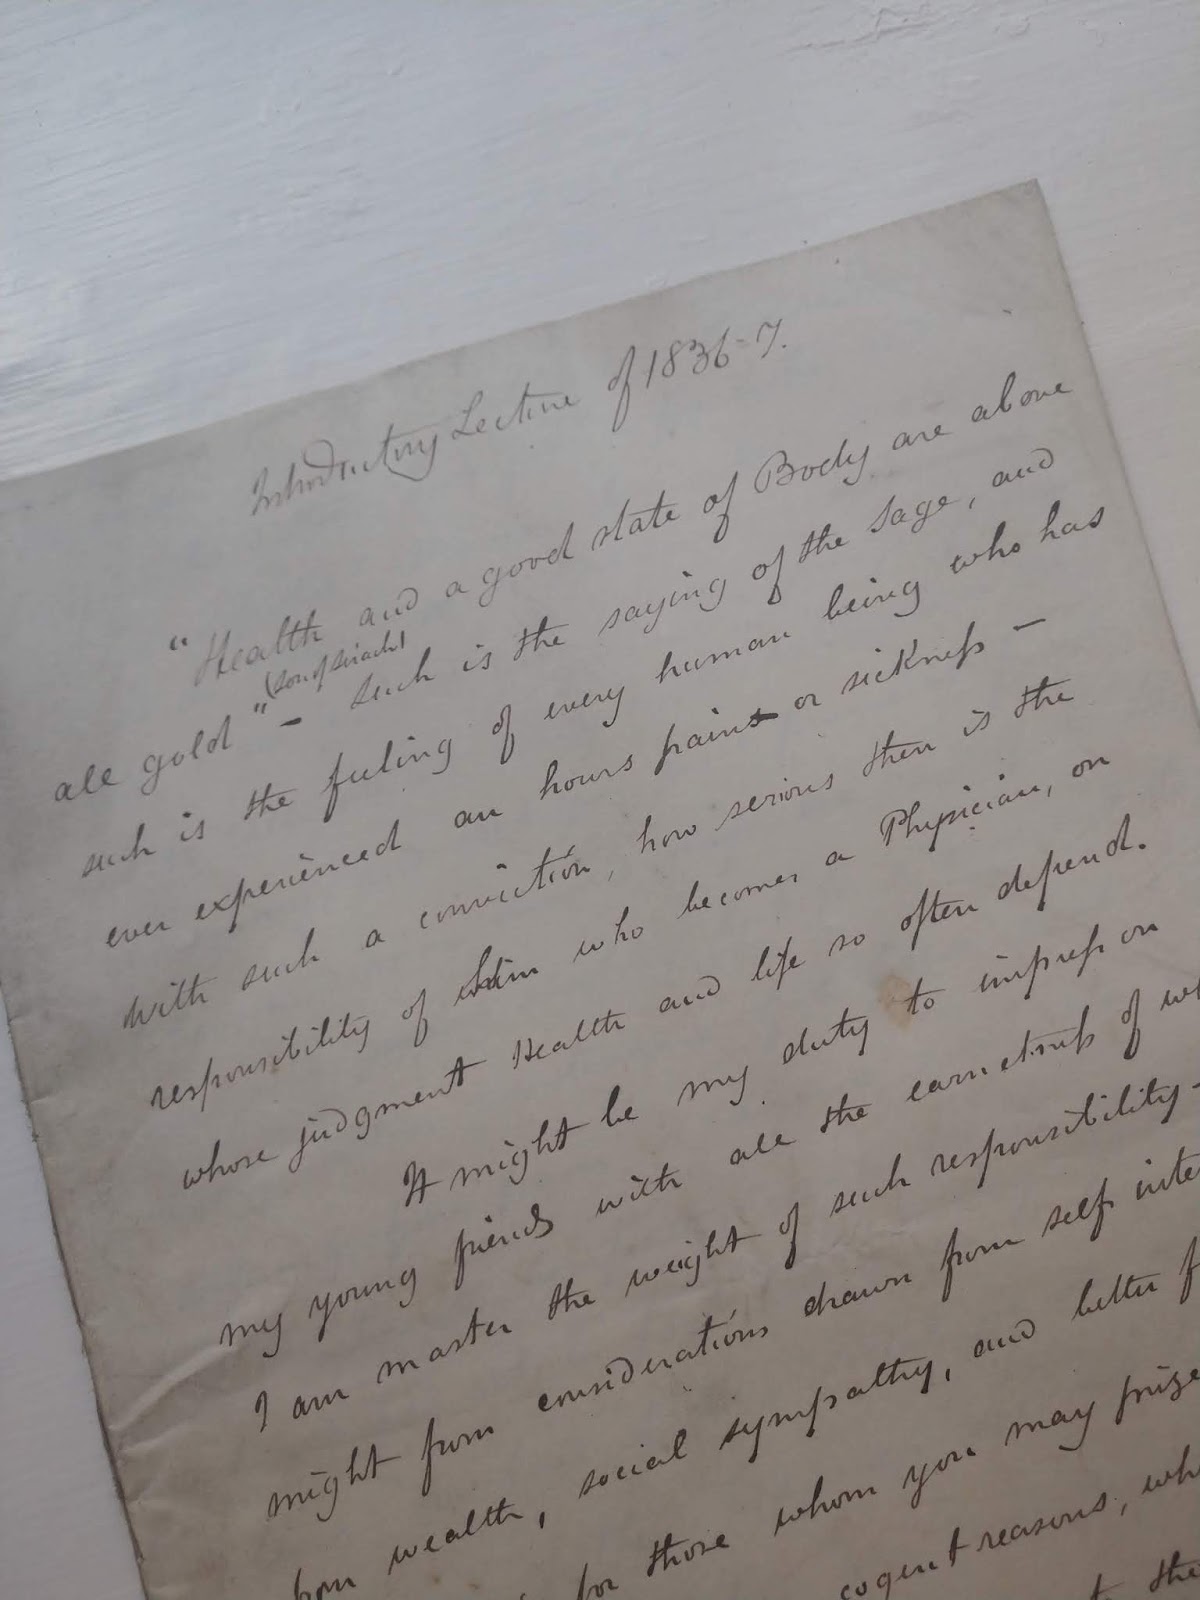 Introductory Lecture of 1836-7.
"Health and a good state of Body are above
(son of Sirach)
all gold" - such is the saying of the Sage, and
such is the feeling of every human being who has
ever experienced an hours pains or sickness -
With such a conviction, how serious then is the
responsibility of him who becomes a Physician, on
whose judgment Health and life so often depend.
It might be my duty to impress on
my young friends with all the earnestness of
I am master the weight of such responsibility -
might from considerations drawn from self
wealth, social sympathy, and better
for those whom you may prize
cogent reasons,
the